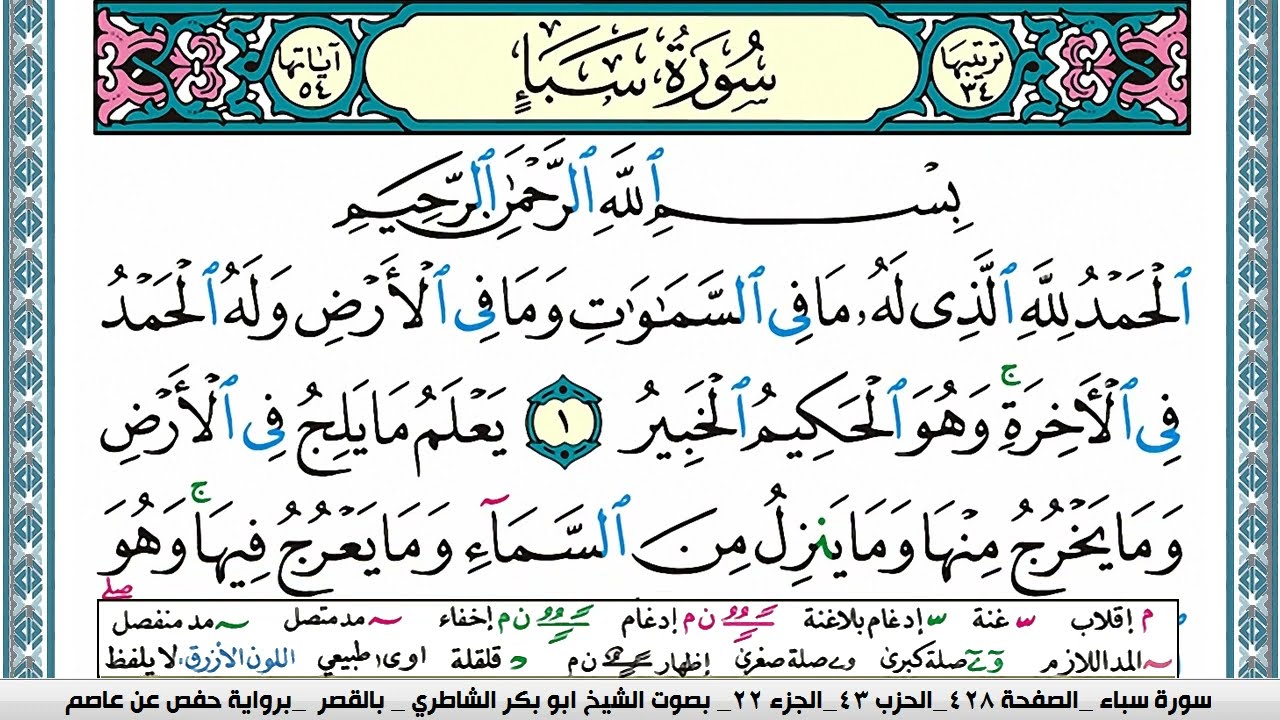 ترتيبها ٣٤
سُورَةُ سَبَإٍ
آياتها ٥٤
بِسْمِ ٱللَّهِ ٱلرَّحْمَٰنِ ٱلرَّحِيمِ
ٱلْحَمْدُ لِلَّهِ ٱلَّذِى لَهُۥ مَا فِى ٱلسَّمَٰوَٰتِ وَمَا فِى ٱلْأَرْضِ وَلَهُ ٱلْحَمْدُ
فِى ٱلْأَخِرَةِ ۚ وَهُوَ ٱلْحَكِيمُ ٱلْخَبِيرُ ١ يَعْلَمُ مَا يَلِجُ فِى ٱلْأَرْضِ
وَمَا يَخْرُجُ مِنْهَا وَمَا يَنزِلُ مِنَ ٱلسَّمَآءِ وَمَا يَعْرُجُ فِيهَا ۚ وَهُوَ
م إقلاب س غنة س إدغام بلاغنة ن م إدغام ن م إخفاء ~ مد متصل ~ مد منفصل
~ المد اللازم صلة كبرى صلة صغرى إظهار ن م د قلقلة اوى طبيعي اللون الأزرق، لا يلفظ
سورة سباء _الصفحة ٤٢٨_الحزب ٤٣_الجزء ٢٢_ بصوت الشيخ ابو بكر الشاطري _ بالقصر _برواية حفص عن عاصم